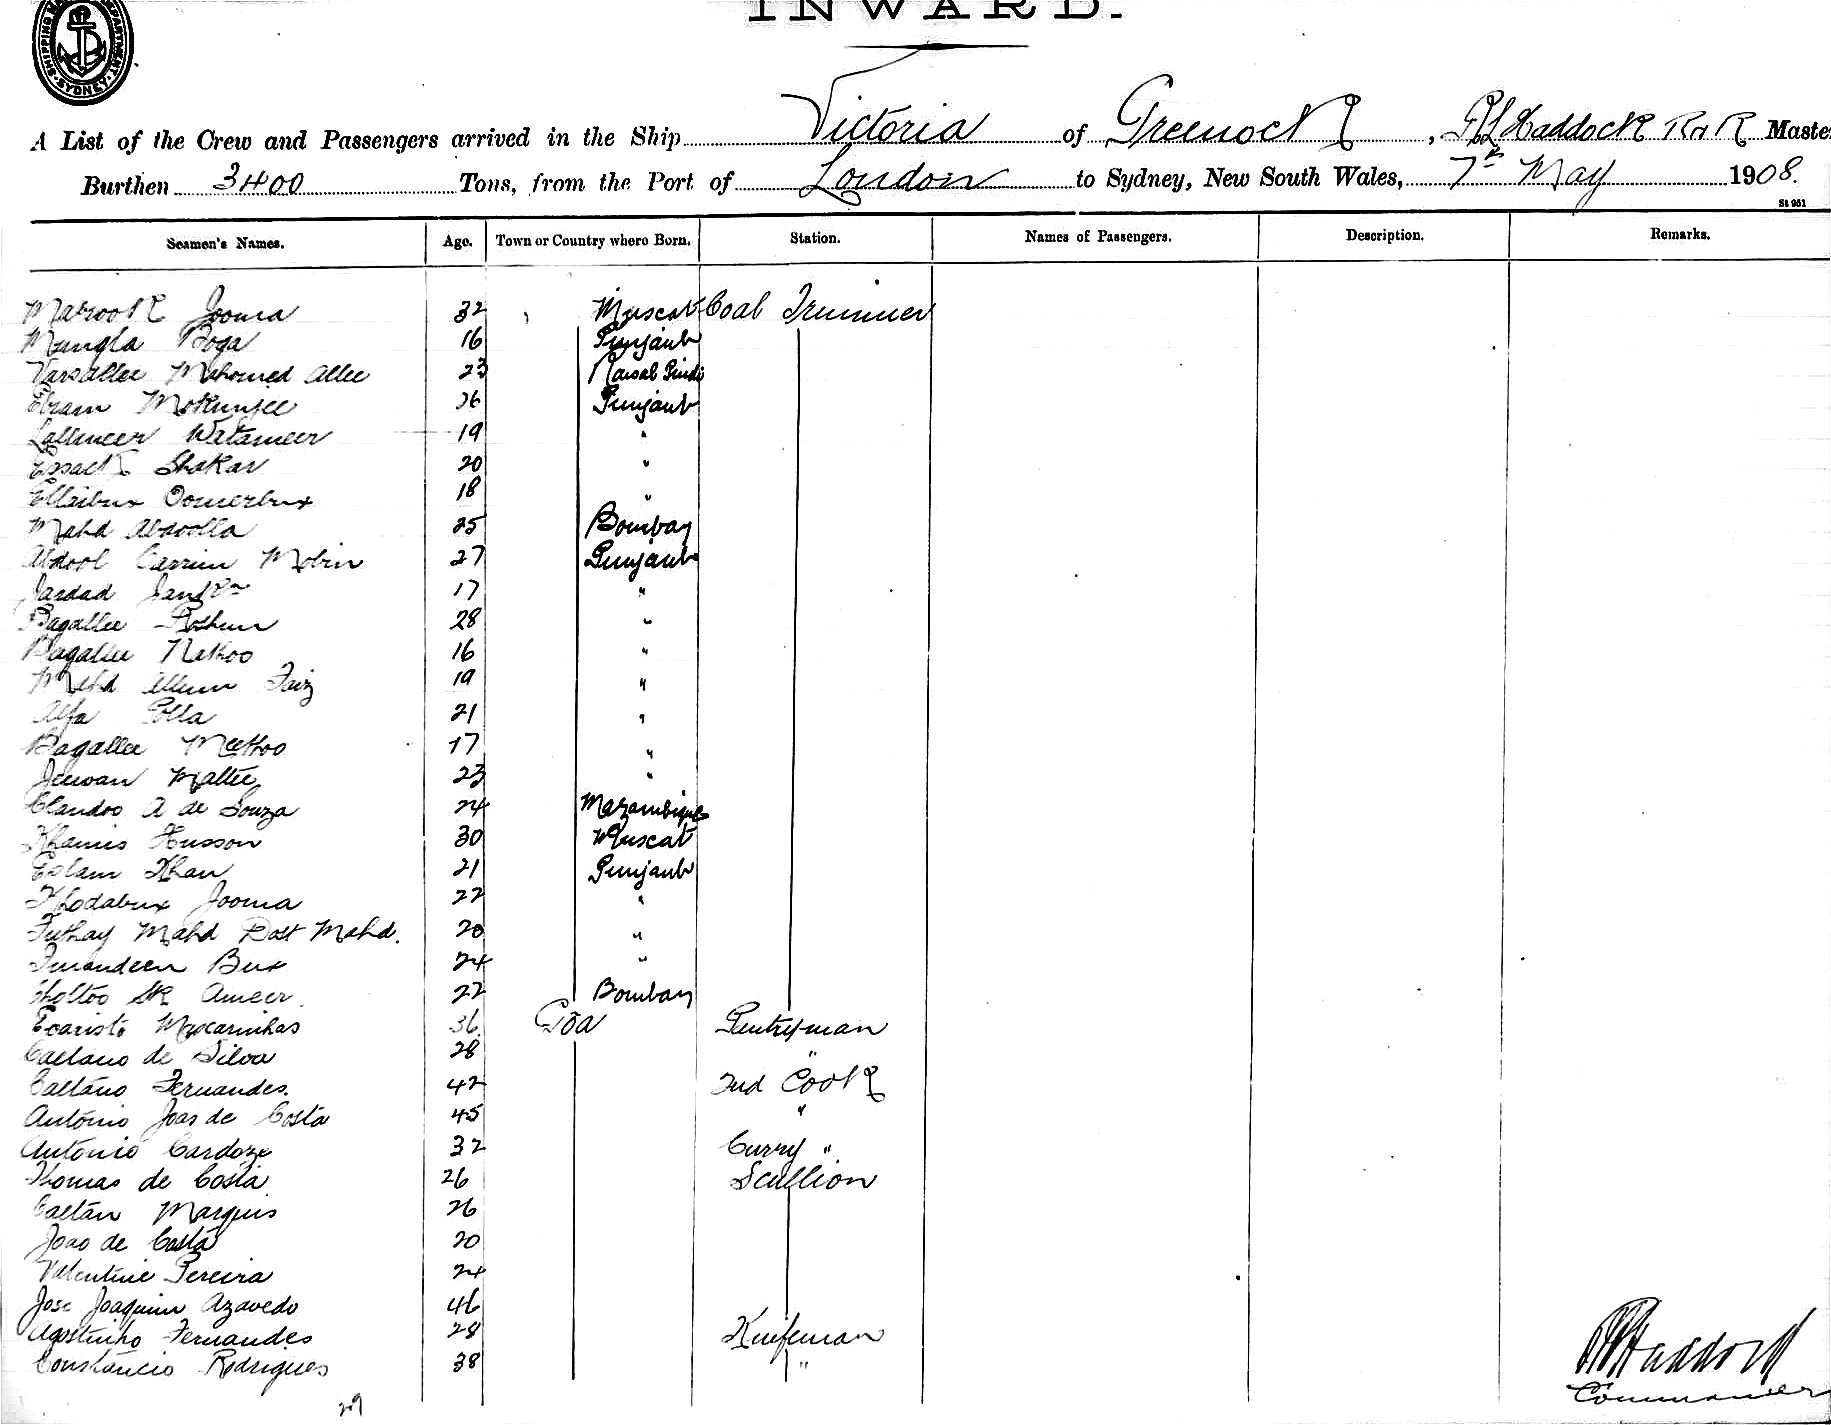 INWARD.
SHIPPING DEPARTMENT SYDNEY
A List of the Crew and Passengers arrived in the Ship Victoria of Greenock, Haddock RNR Maste
Burthen 3400 Tons, from the Port of London to Sydney, New South Wales, 7th May 1908.
St 951
Seamen's Names. Age. Town or Country where Born. Station. Names of Passengers. Description. Remarks.
Mabrook Jooma 32 Muscat Coal Trimmer
Mungla Boga 16 Punjaub
Mahomed Allee 23 Rawal Pindi
Ebram 36 Punjaub
19 "
Essack Shakar 20 "
Oomerbux 18 "
Mahd Abdoolla 25 Bombay
Abdool Carrim Mobin 27 Punjaub
17 "
Bagallee 28 "
Bagallee Nathoo 16 "
Mahd Allum Faiz 19 "
Alfa Golla 21 "
Bagallee Meethoo 17 "
Jeewan Mattee 23 "
A de Souza 24 Mozambique
Khamis Husson 30 Muscat
Golam Khan 21 Punjaub
Khodabux Jooma 22 "
Futhay Mahd Dost Mahd. 20 "
Bux 24 "
Chottoo Sk Ameer 22 Bombay
Evaristo Mascarinhas 36 Goa Pantryman
Caetano de Silva 28 "
Caetano Fernandes. 42 2nd Cook
Antonio Joas de Costa 45 "
Antonio Cardozo 32 Curry "
Thomas de Costa 26 Scullion
Caetan Marquis 26
Joao de Costa 20
Valentine Pereira 24
Jose Joaquim Azavedo 46
Agostinho Fernandes 28 Knifeman
Constancio Rodrigues 38 "
Haddock
Commander
29